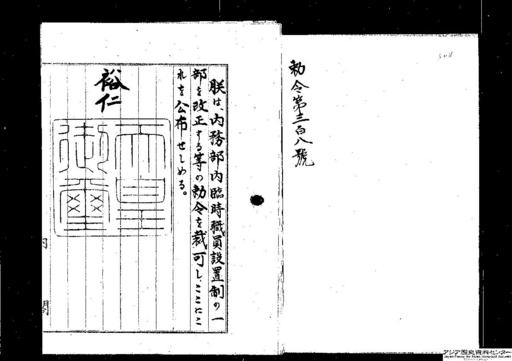 勅令第三百八號
朕は、内務部内臨時職員設置制の一
部を改正する等の勅令を裁可し、ここにこ
れを公布せしめる。
裕仁
天皇
御璽
内閣
アジア歴史資料センター